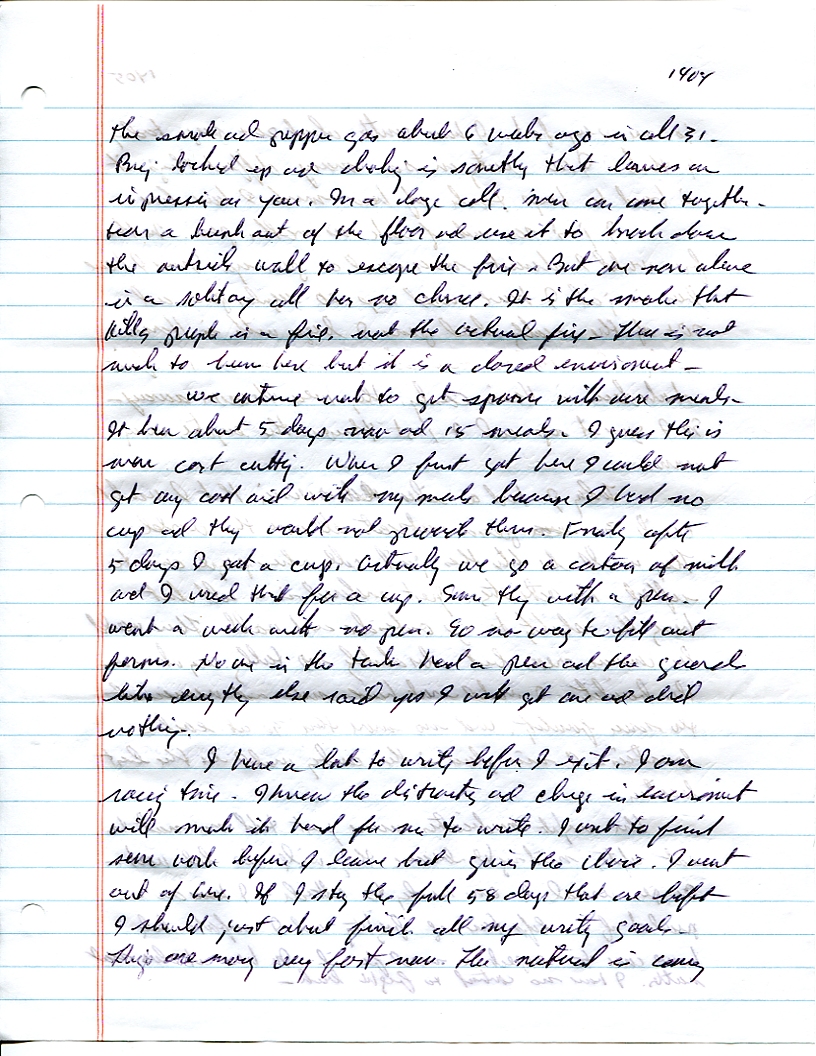 1404
the smoke and pepper gas about 6 weeks ago in cell 31.
Being locked up and choking is something that leaves an
impression on you. In a large cell, men can come together
tear a bunk out of the floor and use it to break down
the outside wall to escape the fire. But one man alone
in a solitary cell has no chance. It is the smoke that
kills people in a fire, not the actual fire - There is not
much to burn here but it is a closed environment -
We continue not to get spoons with our meals -
It been about 5 days now and 15 meals. I guess this is
more cost cutting. When I first got here I could not
get any cool aid with my meals because I had no
cup and they would not provide them. Finally after
5 days I got a cup. Actually we go a carton of milk
and I used that for a cup. Same thing with a pen. I
went a week with no pen. So no way to fill out
forms. No one in the tank had a pen and the guards
like everything else said yes I will get one and did
nothing.
I have a lot to write before I exit. I am
racing time. I know the distractions and change in environment
will make it hard for me to write. I want to finish
some work before I leave but given the choice. I want
out of here. If I stay the full 58 days that are left
I should just about finish all my writing goals -
Things are moving very fast now. The natural is coming